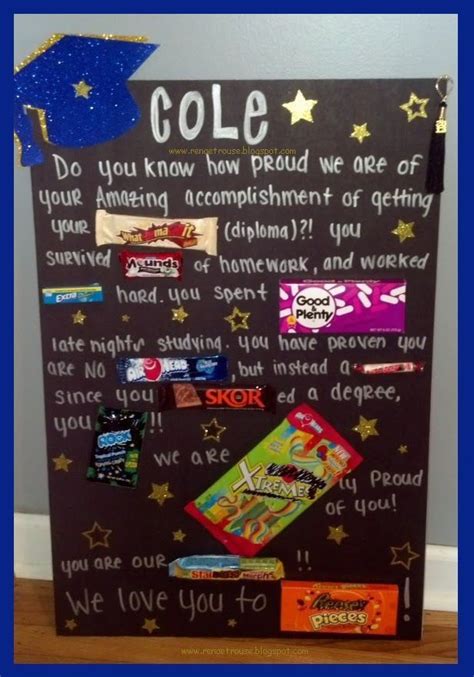 COLE
www.rengetrouse.blogspot.com
Do you know how proud we are of
your Amazing accomplishment of getting
your What cha ma call it (diploma)?! you
survived Mounds of homework, and worked
Extra hard. you spent Good & Plenty
late nights studying. you have proven you
are no AIRHEAD, but instead a
since you SKOR ed a degree,
you ROCK!!
we are XTREMES ly proud
of you!
you are our Star !!
We love you to REESE'S PIECES !
www.rengetrouse.blogspot.com